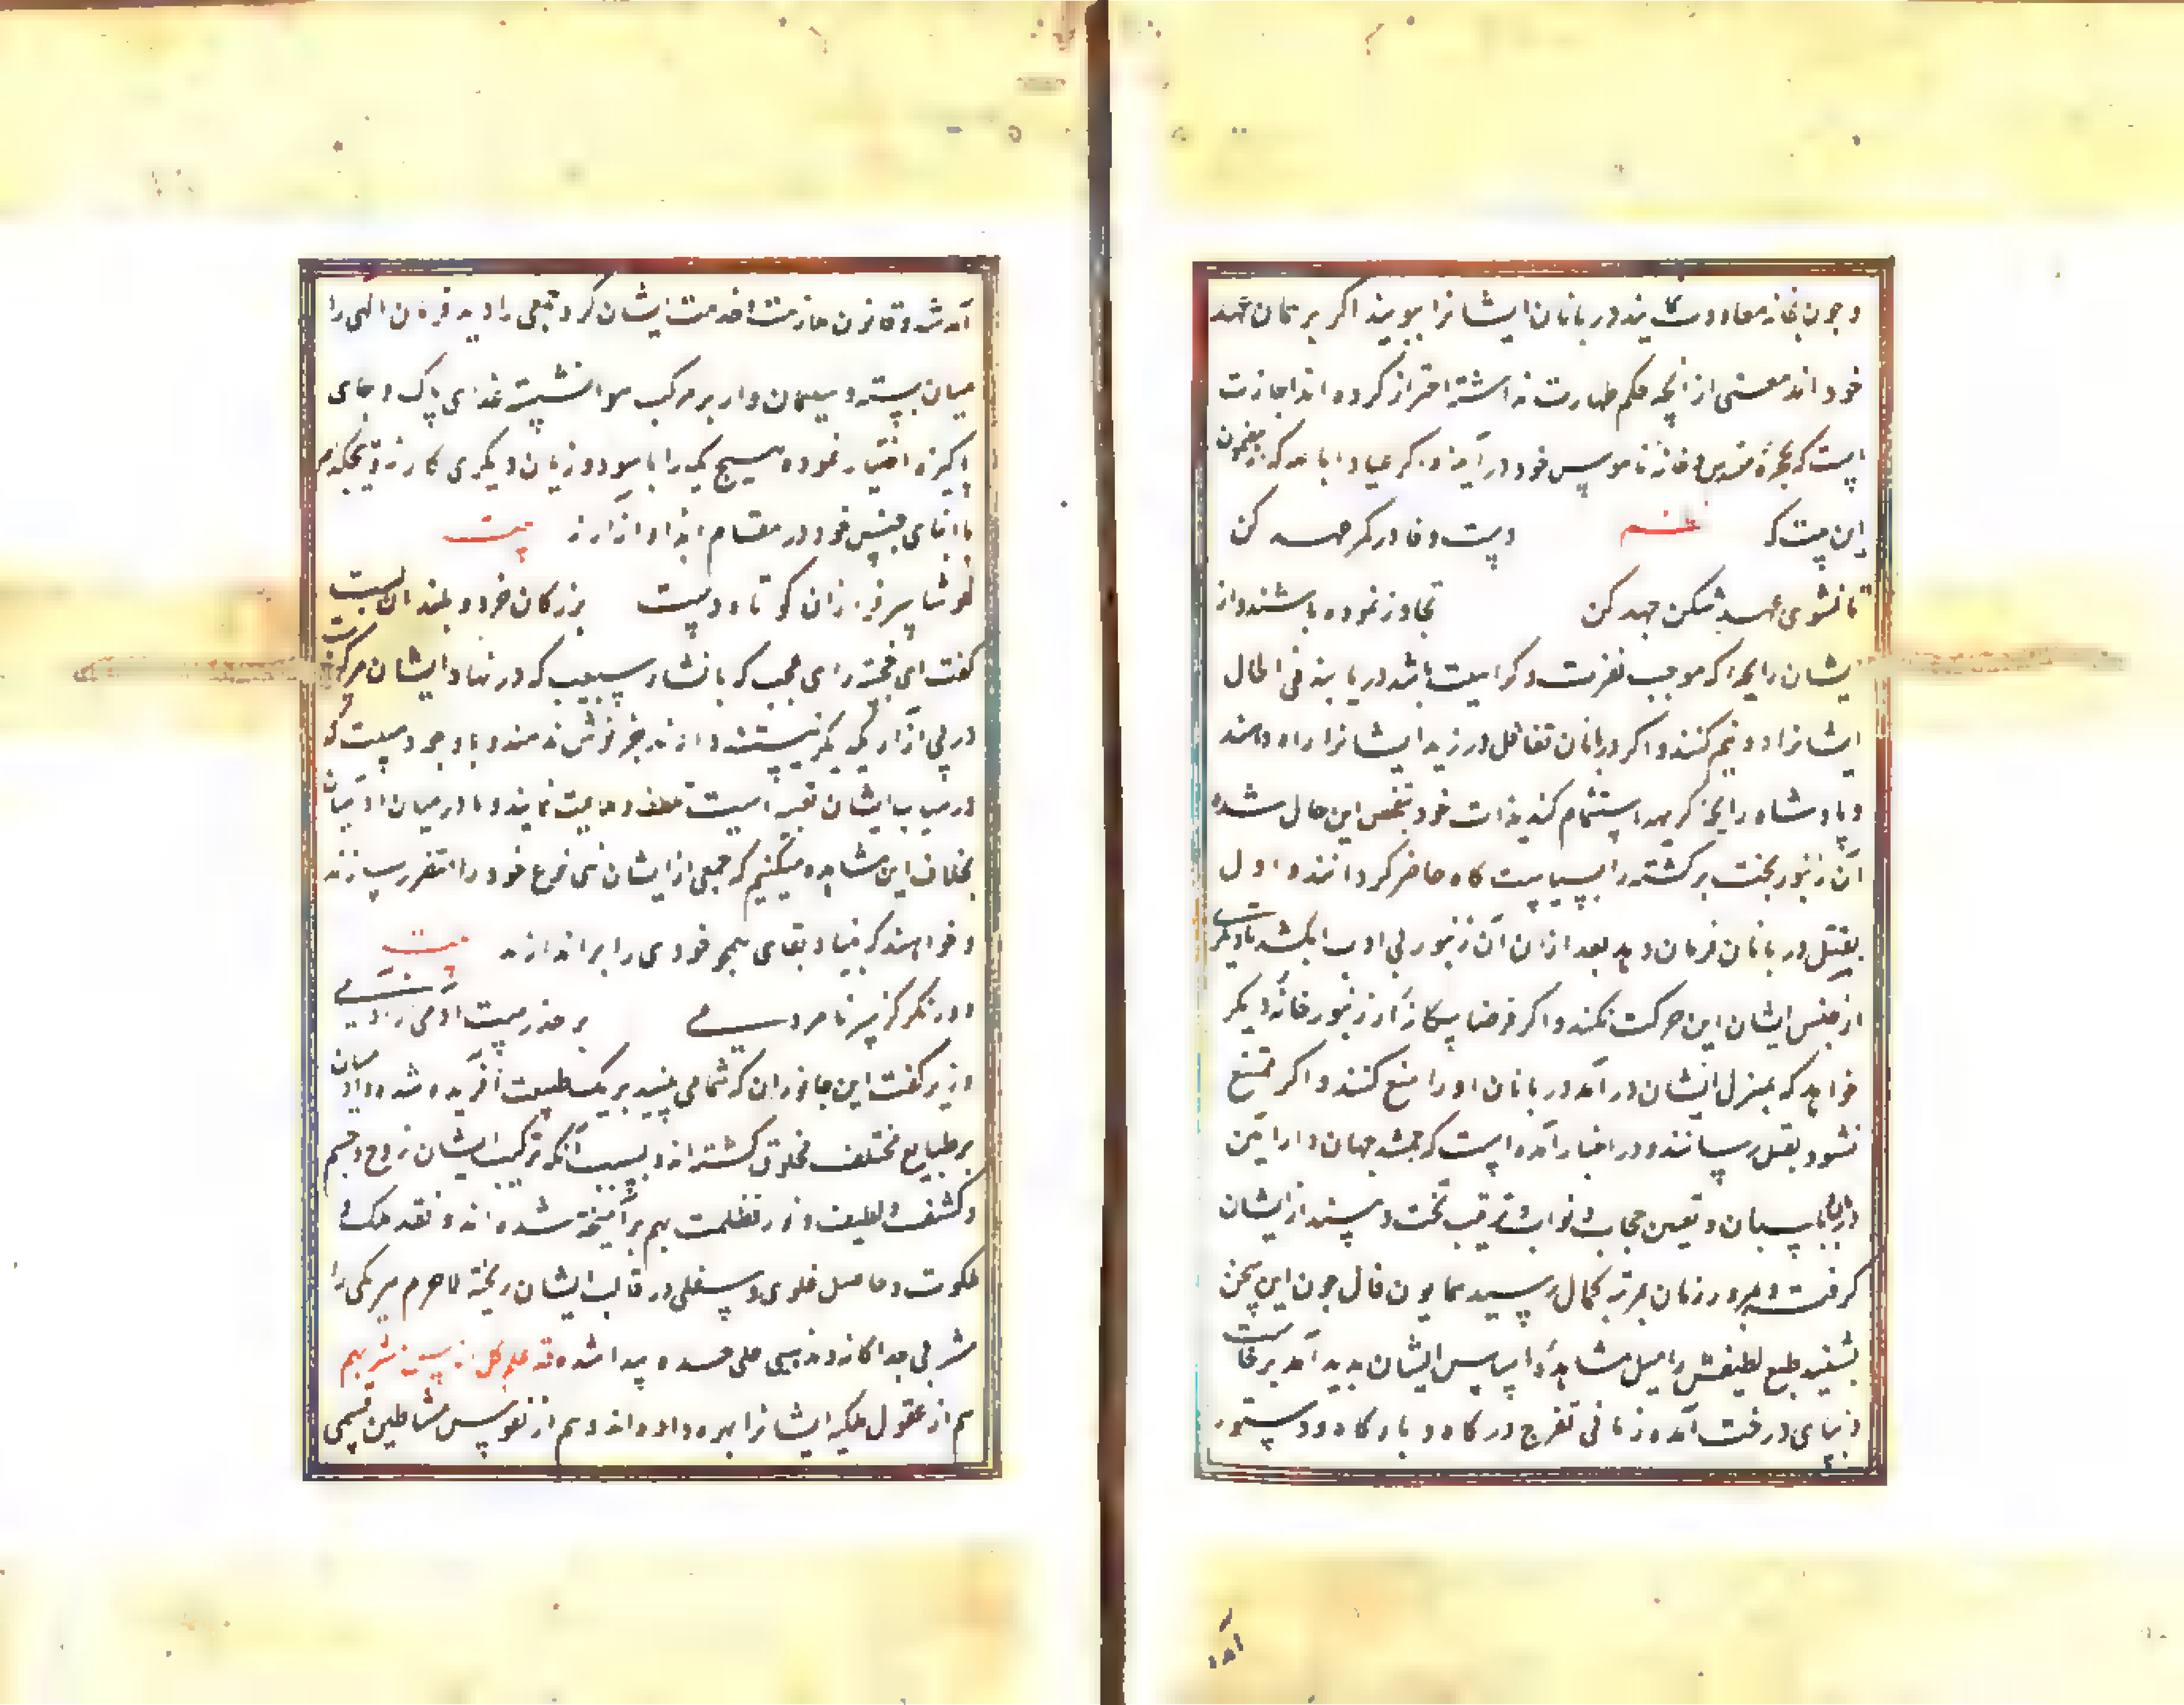 و چون بخانه معاودت نمایند دربانان ایشانرا ببویند اگر بر همان عهد
خود اند معنی از آنچه حکم طهارت نداشته احتراز کرده اند اجازت
است که بحجره مقدس و خانه ناموس خود در آیند و اگر عیاذا بالله که از مضمون
این بیت که نظم دست وفا در کمر عهد کن
تا نشوی عهدشکن جهد کن تجاوز نموده باشند و از
ایشان رایحه که موجب نفرت و کراهیت باشد دریابند فی الحال
ایشانرا دو نیم کنند و اگر دربانان تغافل ورزیده ایشانرا راه دهند
و پادشاه رایحه کریهه استشمام کند بذات خود تفحص این حال شده
آن زنبور بخت برگشته را بسیاست گاه حاضر گردانند و اول
بقتل دربانان فرمان دهد بعد از ان آن زنبور بی ادب را بکشد تا دیگری
از جنس ایشان این حرکت نکند و اگر فرضا بیگانه از زنبور خانه دیگر
خواهد که بمنزل ایشان در آمد دربانان او را منع کنند و اگر ممتنع
نشود بقتل رسانند و در اخبار آمده است که جمشید جهاندار آیین
دربان و پاسبان و تعیین حجاب و نواب و ترتیب تخت و مسند از ایشان
گرفت و بمرور زمان بمرتبه کمال رسید همایون فال چون این سخن
بشنید طبع لطیفش را میل مشاهده اساس ایشان پدید آمد برخاست
و بپای درخت آمد و زمانی تفرج درگاه و بارگاه و دستور
آمد
آمد شد و قانون ملازمت و خدمت ایشان کرد جمعی را دید فرمان الهی را
میان بسته و سلیمان وار بر مرکب هوا نشسته غذای پاک و جای
پاکیزه اختیار نموده هیچ یک را با سود و زیان دیگری کار نه و هیچکدام
با ابنای جنس خود در مقام ایذا و آزار نه بیت
خوشا سرفرازان کوتاه دست بزرگان خرد و بلندان پست
گفت ای خجسته رای عجب که با نشاء سبعیت که در نهاد ایشان مرکوزست
در پی آزار یکدیگر نیستند و از نیش جز نوش ندهند و با وجود نیستی که
در سیاست ایشان تعبیه است لطف و ملایمت نمایند و ما در میان آدمیان
بخلاف این مشاهده میکنیم که جمعی از ایشان بنی نوع خود را متضرر سازند
و خواهند که بنیاد بقای همچو خودی را براندازند بیت
در نگر کز سر نامردمی بر حذر است آدمی از آدمی
وزیر گفت این جانوران که شما می بینید بر یک طبیعت آفریده شده و آدمیان
بر طبایع مختلف مخلوق گشته اند و بسبب آنکه در ترکیب ایشان روح و جسم
و کثیف و لطیف و نور و ظلمت بهم بر آمیخته شده اند و نقد ملک و
ملکوت و حاصل علوی و سفلی در قالب ایشان ریخته لاجرم هر یکی را
مشربی جداگانه و مذهبی علی حده پیدا شده قد علم کل اناس مشربهم
هم از عقول ملکیه ایشانرا بهره داده اند و هم از نفوس شیاطین قسمی